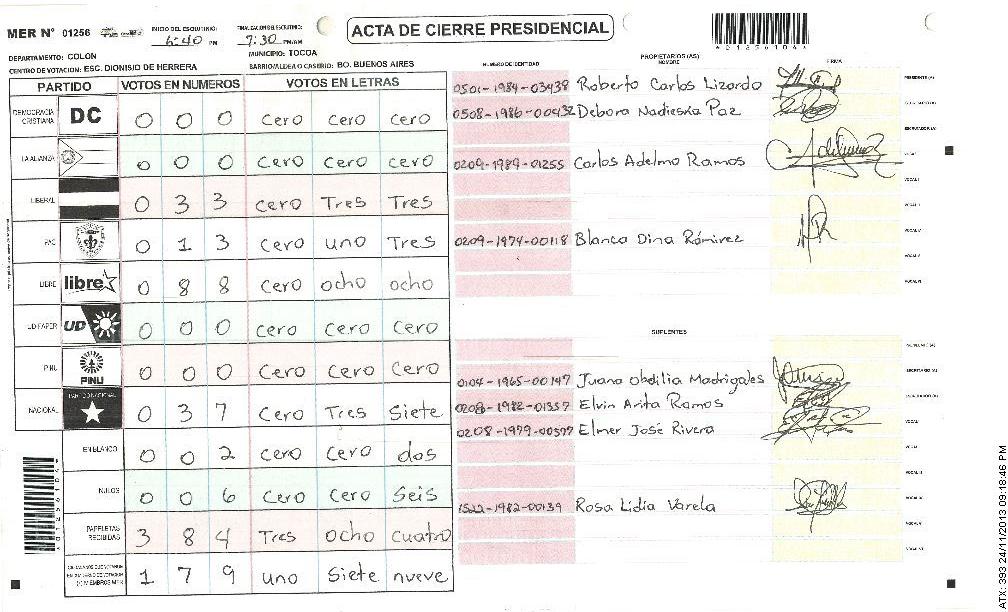 MER N° 01256
INICIO DEL ESCRUTINIO: 6:40 PM
FINALIZACION DEL ESCRUTINIO: 7:30 PM/AM
ACTA DE CIERRE PRESIDENCIAL
DEPARTAMENTO: COLON
MUNICIPIO: TOCOA
CENTRO DE VOTACION: ESC. DIONISIO DE HERRERA
BARRIO/ALDEA O CASERIO: BO. BUENOS AIRES
PARTIDO VOTOS EN NUMEROS VOTOS EN LETRAS
DEMOCRACIA CRISTIANA DC 0 0 0 cero cero cero
LA ALIANZA 0 0 0 cero cero cero
LIBERAL 0 3 3 cero Tres Tres
PAC 0 1 3 Cero uno Tres
LIBRE libre 0 8 8 Cero ocho ocho
UD FAPER UD 0 0 0 cero cero cero
PINU PINU 0 0 0 cero cero cero
NACIONAL PARTIDO NACIONAL 0 3 7 Cero Tres Siete
EN BLANCO 0 0 2 cero cero dos
NULOS 0 0 6 Cero Cero Seis
PAPELETAS RECIBIDAS 3 8 4 Tres ocho cuatro
1 7 9 uno Siete nueve
NUMERO DE IDENTIDAD PROPIETARIOS (AS) NOMBRE FIRMA
0501-1984-03438 Roberto Carlos Lizardo PRESIDENTE (A)
0508-1986-00432 Debora Nadieska Paz
ESCRUTADOR (A)
0209-1989-01255 Carlos Adelmo Ramos VOCAL I
VOCAL II
VOCAL III
0209-1974-00118 Blanca Dina Rámirez VOCAL IV
VOCAL V
VOCAL VI
SUPLENTES
PRESIDENTE (A)
0104-1965-00147 Juana Obdilia Madrigales SECRETARIO (A)
0208-1982-01357 Elvin Arita Ramos ESCRUTADOR (A)
0208-1979-00597 Elmer José Rivera VOCAL I
VOCAL II
VOCAL III
1522-1982-00139 Rosa Lidia Varela VOCAL IV
VOCAL V
VOCAL VI
ATX: 393 24/11/2013 09:18:46 PM